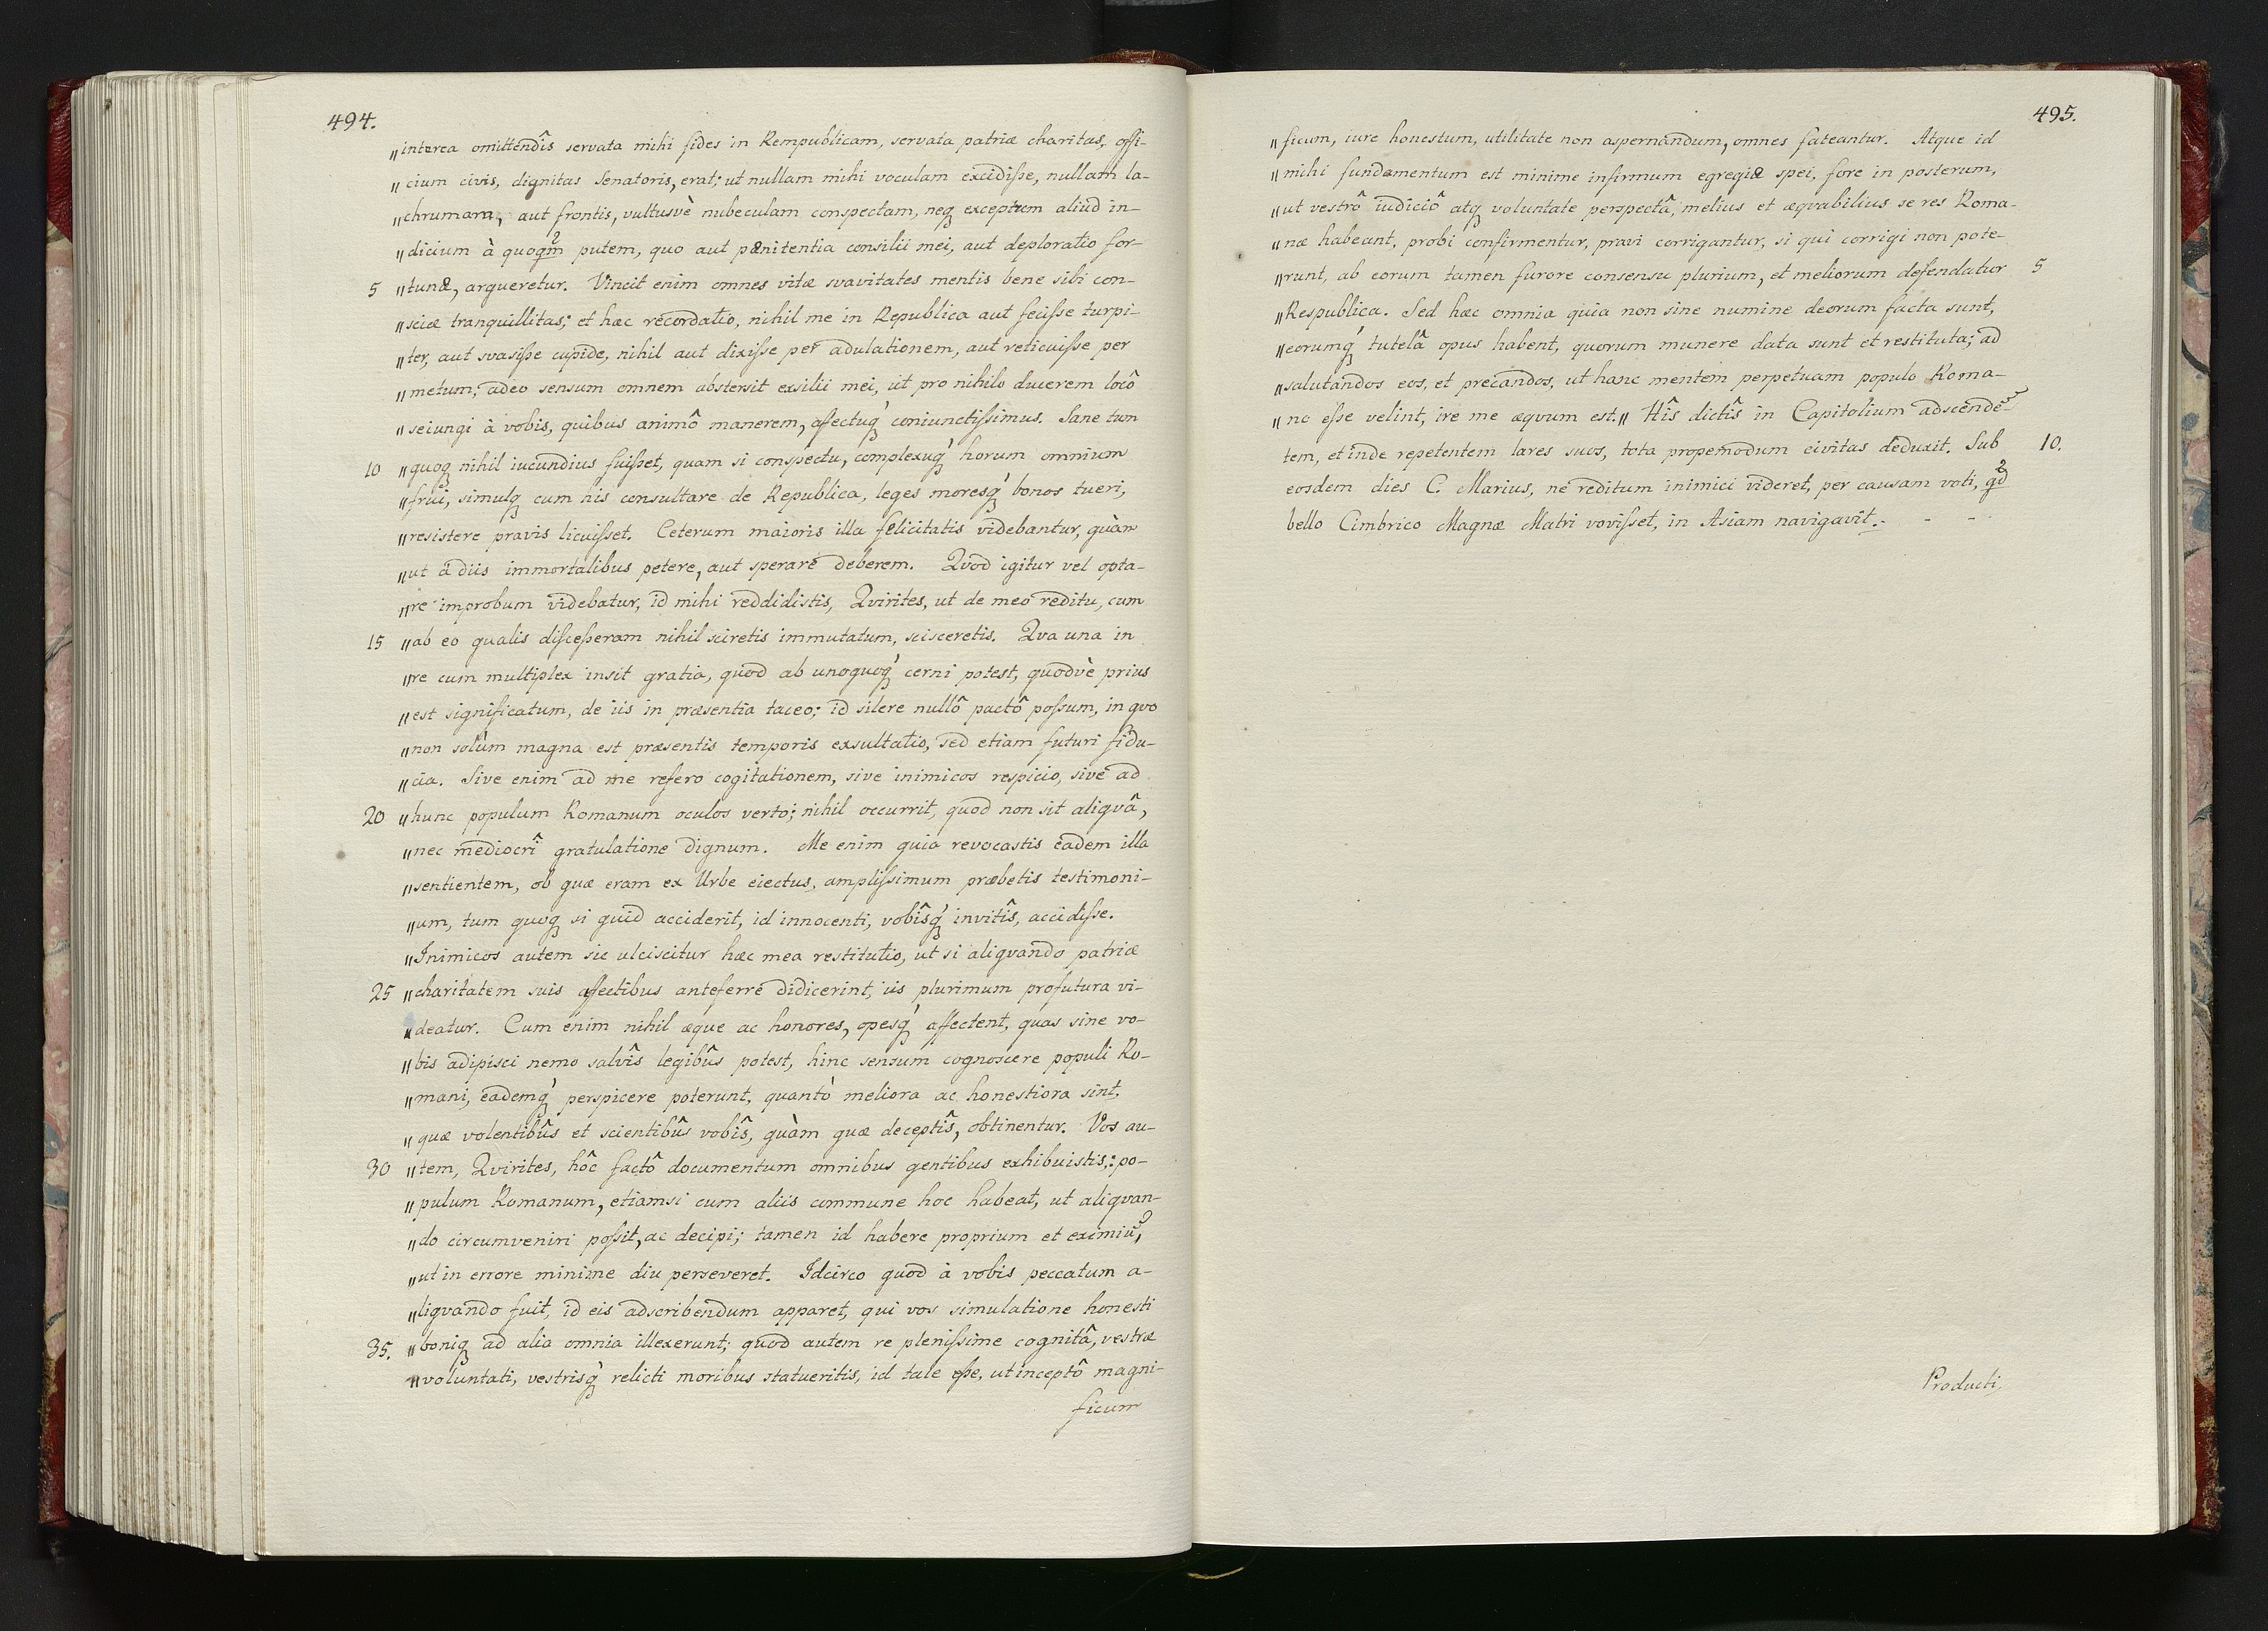 494.
„interea omittendîs servata mihi fides in Rempublicam, servata patriæ charitas, offi-
„cium civis, dignitas Senatoris, erat; ut nullam mihi voculam excidiſse, nullam la-
„chrumam, aut frontis, vultusvè nubeculam conspectam, neq; exceptum aliud in-
„dicium à quoqm̃ putem, quo aut pænitentia consilii mei, aut deploratio for-
5 „tunæ, argueretur. Vincit enim omnes vitæ svavitates mentis bene sibi con-
„sciæ tranquillitas; et hæc recordatio, nihil me in Republica aut feciſse turpi-
„ter, aut svasiſse cupide, nihil aut dixiſse per adulationem, aut reticuiſse per
„metum, adeo sensum omnem abstersit exsilii mei, ut pro nihilo ducerem locô
„seiungi à vobis, quibus animô manerem, affectuq;́ coniunctiſsimus. Sane tum
10 „quoq; nihil iucundius fuiſset, quam si conspectu, complexuq;́ horum omnium
„frui, simulq; cum his consultare de Republica, leges moresq;́ bonos tueri,
„resistere pravis licuiſset. Ceterum maioris illa felicitatis videbantur, quàm
„ut à diis immortalibus petere, aut sperare deberem. Qvod igitur vel opta-
„re improbum videbatur, id mihi reddidistis, Qvirites, ut de meo reditu, cum
15 „ab eo qualis diſceſseram nihil sciretis immutatum, scisceretis. Qva una in
„re cum multiplex insit gratia, quod ab unoquoq;́ cerni potest, quodvè prius
„est significatum, de iis in præsentia taceo; id silere nullô pactô poſsum, in qvo
„non solùm magna est præsentis temporis exsultatio, sed etiam futuri fidu-
„cia. Sive enim ad me refero cogitationem, sive inimicos respicio, sive ad
20 „hunc populum Romanum oculos verto; nihil occurrit, quod non sit aliqvâ,
„nec mediocrî gratulatione dignum. Me enim quia revocastis eadem illa
„sentientem, ob quæ eram ex Urbe eiectus, ampliſsimum præbetis testimoni-
„um, tum quoq; si quid acciderit, id innocenti, vobîsq;́ invitîs, accidiſse.
„Inimicos autem sic ulciscitur hæc mea restitutio, ut si aliqvando patriæ
25 „charitatem suis affectibus anteferre didicerint, iis plurimum profutura vi-
„deatur. Cum enim nihil æque ac honores, opesq;́ affectent, quas sine vo-
„bis adipisci nemo salvîs legibûs potest, hinc sensum cognoscere populi Ro-
„mani, eademq;́ perspicere poterunt, quantò meliora ac honestiora sint,
„quæ volentibûs et scientibûs vobîs, quàm quæ deceptîs, obtinentur. Vos au-
30 „tem, Qvirites, hôc factô documentum omnibus gentibus exhibuistis,: po-
„pulum Romanum, etiamsi cum aliis commune hoc habeat, ut aliqvan-
„do circumveniri poſsit, ac decipi; tamen id habere proprium et eximiũ,
„ut in errore minime diu perseveret. Idcirco quod à vobis peccatum a-
„liqvando fuit, id eis adscribendum apparet, qui vos simulatione honesti
35. „boniq; ad alia omnia illexerunt; quod autem re pleniſsime cognitâ, vestræ
„voluntati, vestrisq;́ relicti moribus statueritis, id tale eſse, ut inceptô magni-
ficum
495.
„ficum, iure honestum, utilitate non aspernandum, omnes fateantur. Atque id
„mihi fundamentum est minime infirmum egregiæ spei, fore in posterum,
„ut vestrô iudiciô atq; voluntate perspectâ, melius et æqvabilius se res Roma-
„næ habeant, probi confirmentur, pravi corrigantur, si qui corrigi non pote-
„runt, ab eorum tamen furore consensu plurium, et meliorum defendatur 5
„Respublica. Sed hæc omnia quia non sine numine deorum facta sunt,
„eorumq;́ tutelâ opus habent, quorum munere data sunt et restituta; ad
„salutandos eos, et precandos, ut hanc mentem perpetuam populo Roma-
„no eſse velint, ire me æqvum est.„ Hîs dictîs in Capitolium adscendẽ-
tem, et inde repetentem lares suos, tota propemodum civitas deduxit. Sub 10.
eosdem dies C. Marius, ne reditum inimici videret, per causam voti, qd̃
bello Cimbrico Magnæ Matri voviſset, in Asiam navigavit. - - -
Producti